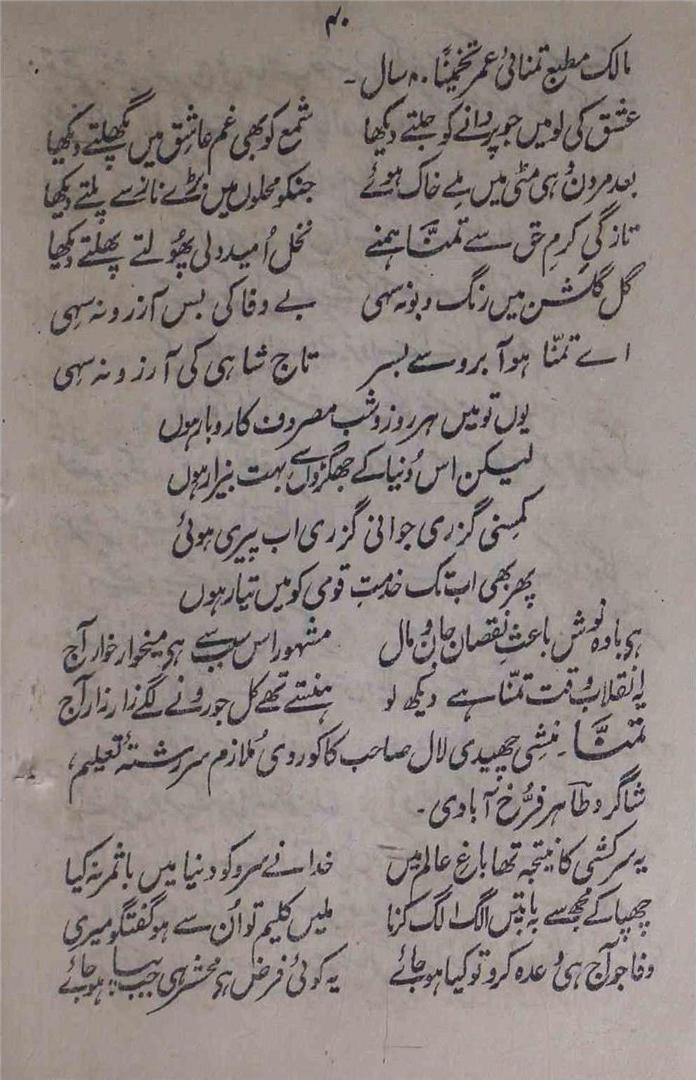 ۴۰
مالک مطبع تمنائی عمر تخمیناً ۸۰ سال ۔
عشق کی لو میں جو پروانے کو جلتے دیکھا شمع کو بھی غم عاشق میں پگھلتے دیکھا
بعد مردن وہی مٹی میں ملے خاک ہوئے جنکو محلوں میں بڑے ناز سے پلتے دیکھا
تازگیِ کرمِ حق سے تمنّا ہمنے نخل اُمید دلی پھُولتے پھلتے دیکھا
گل گلشن میں رنگ و بو نہ سہی بے وفا کی بس آرزو نہ سہی
اے تمنّا ہو آبرو سے بسر تاج شاہی کی آرزو نہ سہی
یوں تو میں ہر روز و شب مصروف کاروبار ہوں
لیکن اس دُنیا کے جھگڑوں سے بہت بیزار ہوں
کمسِنی گزری جوانی گزری اب پیری ہوئی
پھر بھی اب تک خدمتِ قومی کو میں تیار ہوں
ہی بادہ نوش باعثِ نقصان جان و مال مشہور اس سبب سے ہی میخوار خوار آج
یہ انقلاب وقت تمنّا ہے دیکھ لو ہنستے تھے کل جو رونے لگے زار زار آج
تمنّا ۔ منشی چھیدی لال صاحب کاکوروی مُلازم سررشتۂ تعلیم،
شاگرد طاہر فرُّخ آبادی ۔
یہ سرکشی کا نتیجہ تھا باغِ عالم میں خدا نے سرو کو دنیا میں باثمر نہ کیا
چھپا کے مجھسے یہ باتیں الگ الگ کرنا ملیں کلیم تو اُن سے ہو گفتگو میری
وفا جو آج ہی وعدہ کرو تو کیا ہو جائے یہ کوئی فرض ہی محشر ہی جب بپا ہو جائے